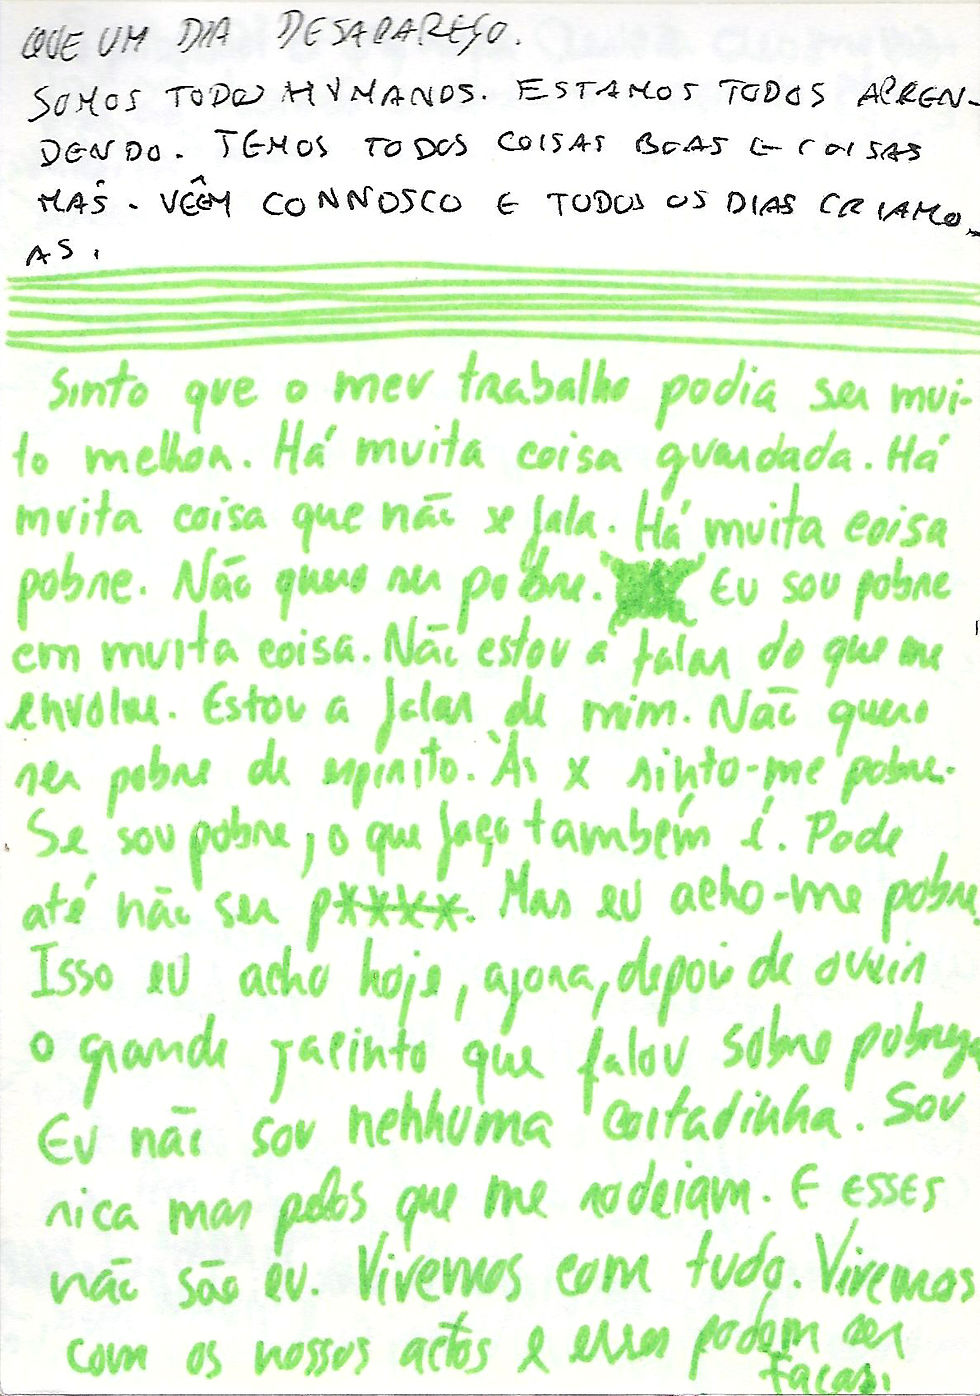 QUE UM DIA DESAPAREÇO.
SOMOS TODOS HUMANOS. ESTAMOS TODOS APREN-
DENDO. TEMOS TODOS COISAS BOAS E COISAS
MÁS. VÊEM CONNOSCO E TODOS OS DIAS CRIAMO-
AS.
Sinto que o meu trabalho podia ser mui-
to melhor. Há muita coisa guardada. Há
muita coisa que não se fala. Há muita coisa
pobre. Não quero ser pobre. Eu sou pobre
em muita coisa. Não estou a falar do que me
envolve. Estou a falar de mim. Não quero
ser pobre de espírito. Às x sinto-me pobre.
Se sou pobre, o que faço também é. Pode
até não ser p****. Mas eu acho-me pobre.
Isso eu acho hoje, agora, depois de ouvir
o grande Jacinto que falou sobre pobreza
Eu não sou nenhuma coitadinha. Sou
rica mas pelos que me rodeiam. E ESSES
não são eu. Vivemos com tudo. Vivemos
com os nossos actos e esses podem ser
facas.